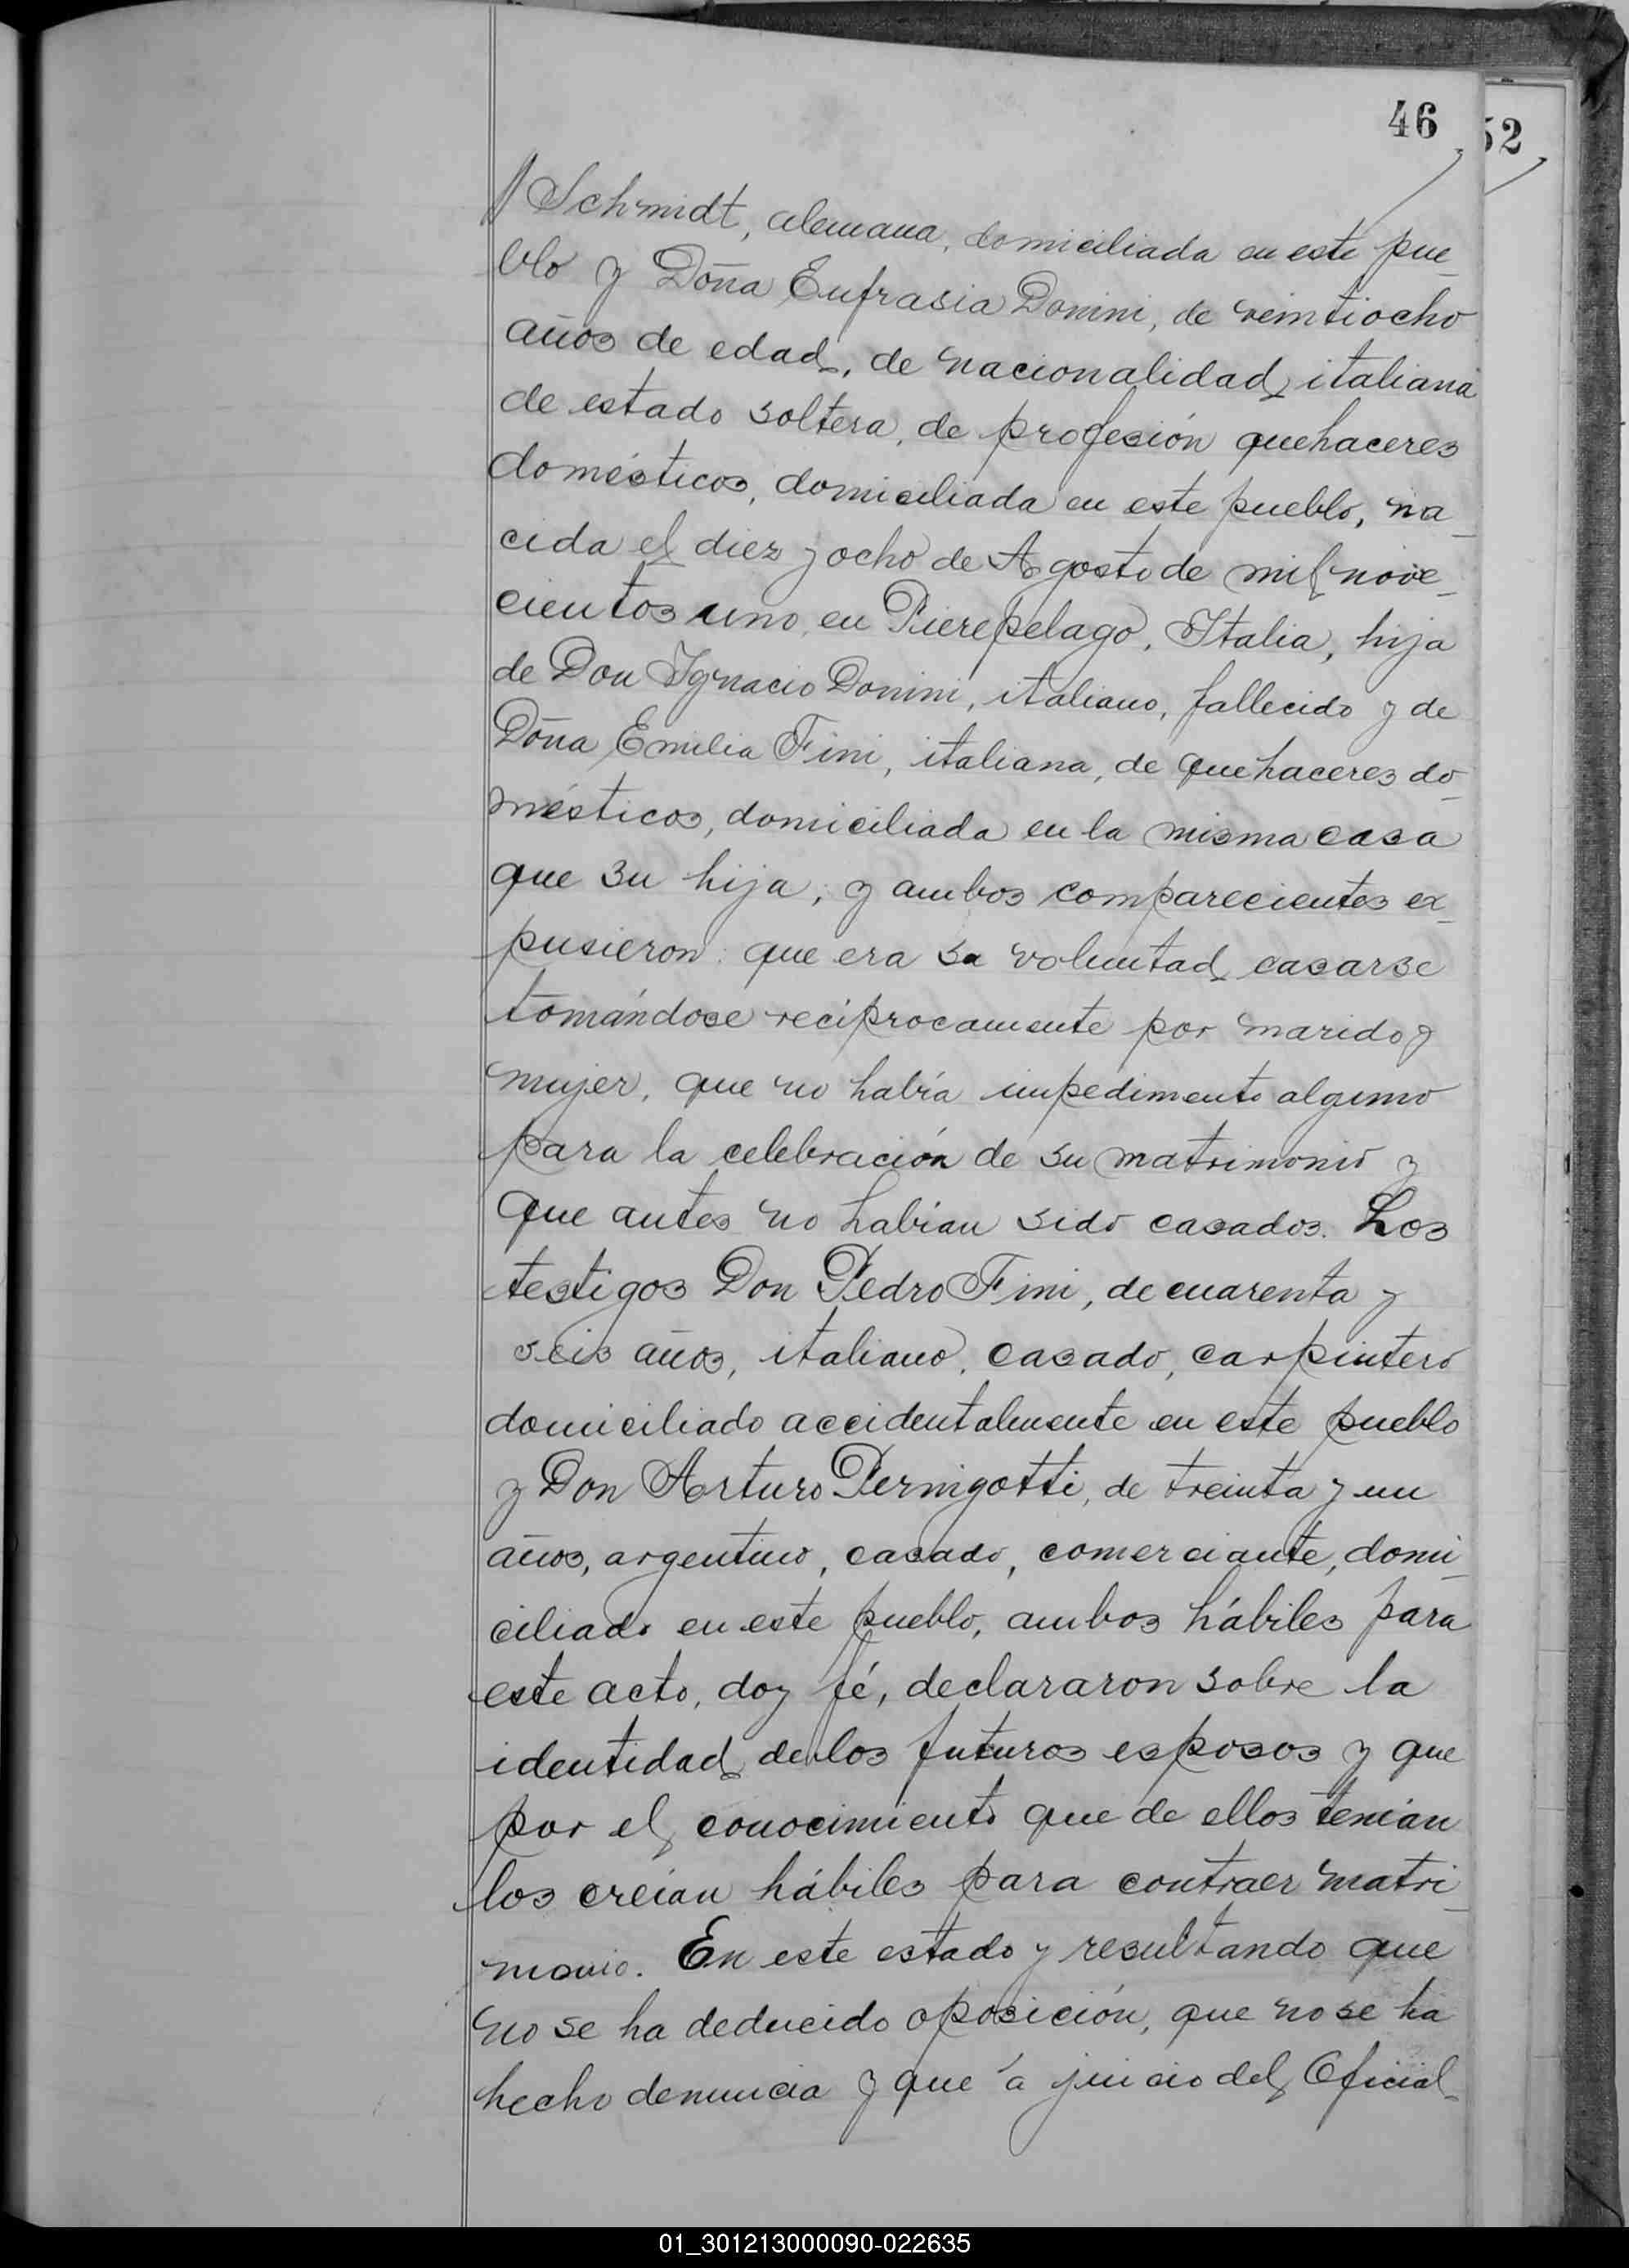 46
52
Schmidt, alemana, domiciliada en este pue_
blo y Doña Eufrasia Donini, de veintiocho
años de edad, de nacionalidad italiana
de estado soltera, de profesión quehaceres
domésticos, domiciliada en este pueblo, na_
cida el diez y ocho de Agosto de mil nove_
cientos uno, en Pierepelago, Italia, hija
de Don Ignacio Donini, italiano, fallecido y de
Doña Emilia Fini, italiana, de quehaceres do_
mésticos, domiciliada en la misma casa
que su hija; y ambos comparecientes ex_
pusieron: que era su voluntad casarse
tomándose recíprocamente por marido y
mujer, que no había impedimento alguno
para la celebración de su matrimonio y
que antes no habían sido casados. Los
testigos Don Pedro Fini, de cuarenta y
seis años, italiano, casado, carpintero
domiciliado accidentalmente en este pueblo
y Don Arturo Pernigotti, de treinta y un
años, argentino, casado, comerciante, domi_
ciliado en este pueblo, ambos hábiles para
este acto, doy fé, declararon sobre la
identidad de los futuros esposos y que
por el conocimiento que de ellos tenían
los creían hábiles para contraer matri_
monio. En este estado y resultando que
no se ha deducido oposición, que no se ha
hecho denuncia y que á juicio del Oficial
01_301213000090-022635